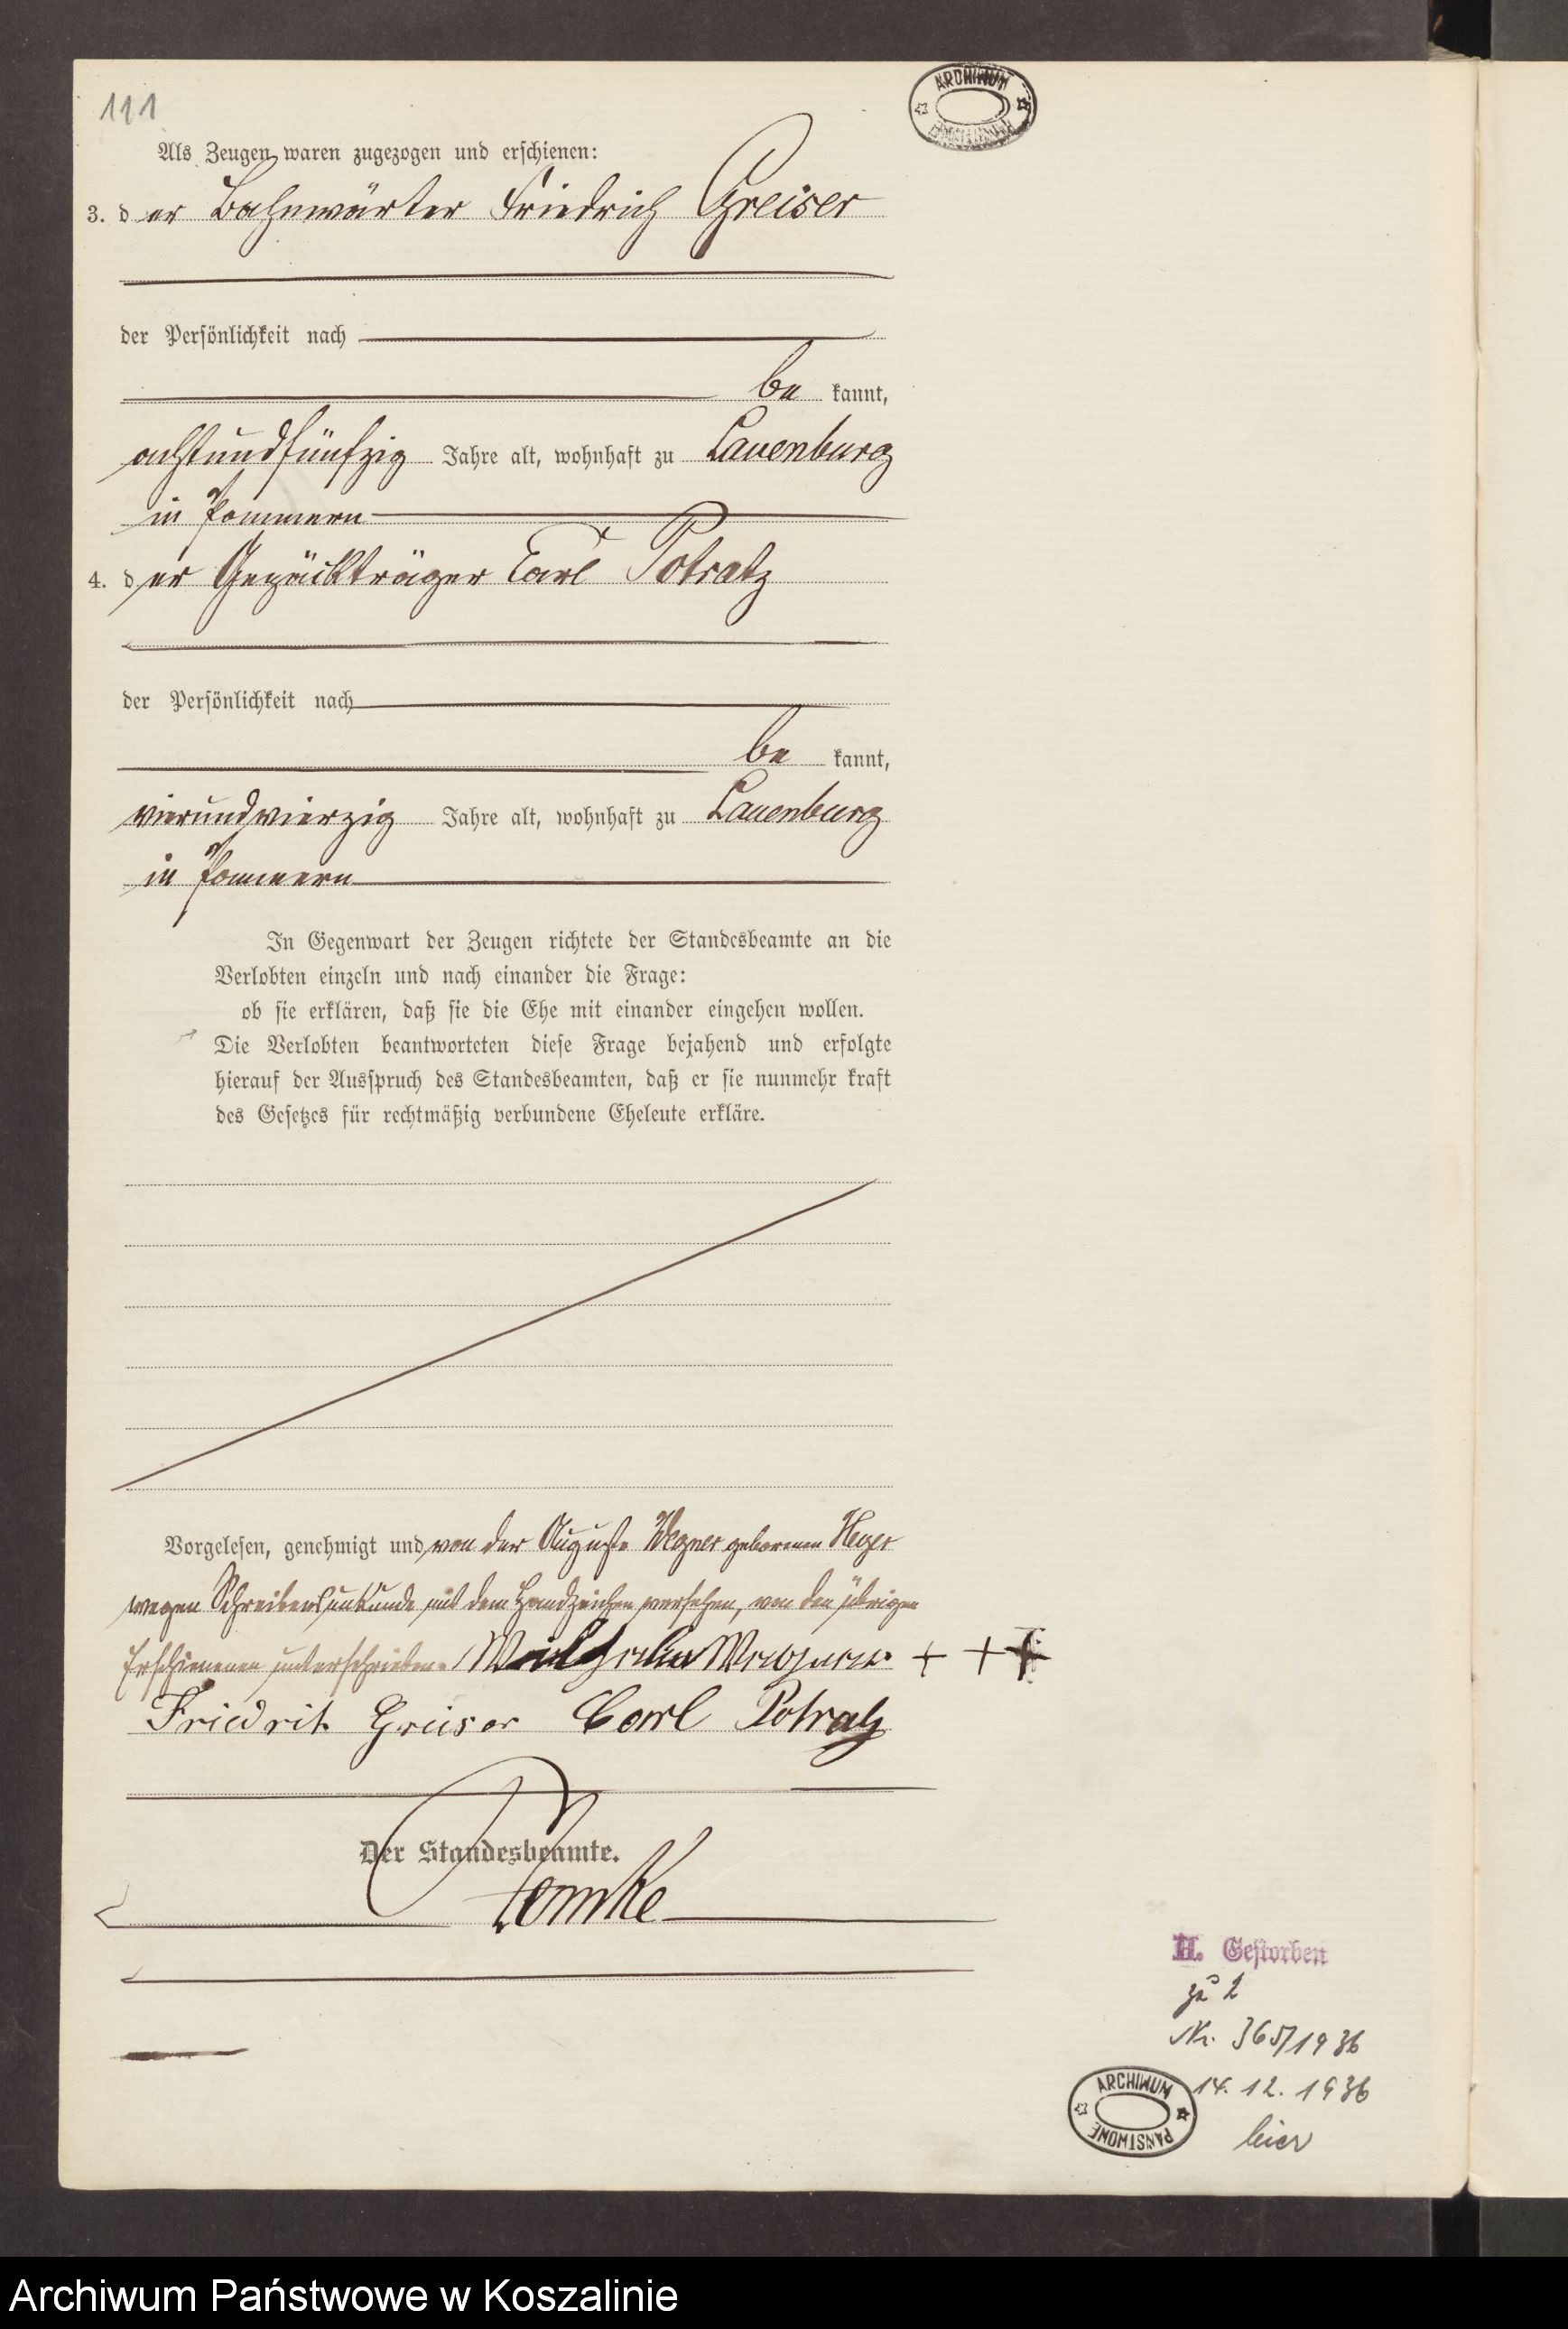 111
ARCHIWUM PAŃSTWOWE
Als Zeugen waren zugezogen und erschienen:
3. der Bahnwärter Friedrich Greiser
der Persönlichkeit nach
be kannt,
achtundfünfzig Jahre alt, wohnhaft zu Lauenburg
in Pommern
4. der Gepäckträger Carl Potratz
der Persönlichkeit nach
be kannt,
vierundvierzig Jahre alt, wohnhaft zu Lauenburg
in Pommern
In Gegenwart der Zeugen richtete der Standesbeamte an die
Verlobten einzeln und nach einander die Frage:
ob sie erklären, daß sie die Ehe mit einander eingehen wollen.
Die Verlobten beantworteten diese Frage bejahend und erfolgte
hierauf der Ausspruch des Standesbeamten, daß er sie nunmehr kraft
des Gesetzes für rechtmäßig verbundene Eheleute erkläre.
Vorgelesen, genehmigt und von der Auguste Wegner geborenen Heyer
wegen Schreibensunkunde mit dem Handzeichen versehen, von den übrigen
Erschienenen unterschrieben. Wilhelm Wegner + + +
Friedrich Greiser Carl Potratz
Der Standesbeamte.
H. Gestorben
zu 2
Nr. 365/1936
14. 12. 1936
hier
ARCHIWUM PAŃSTWOWE
Archiwum Państwowe w Koszalinie